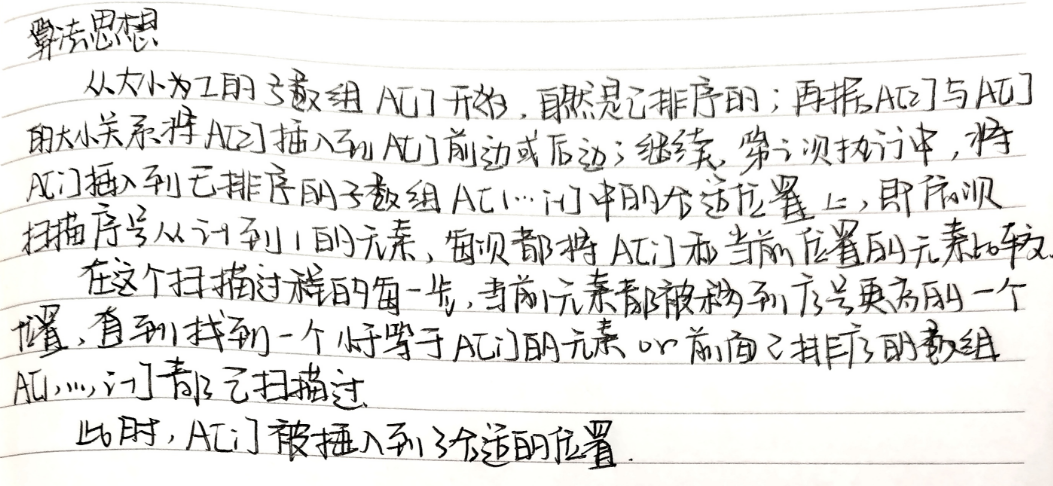 算法思想
从大小为1的子数组A[1]开始,自然是已排序的;再据A[2]与A[1]
的大小关系将A[2]插入到A[1]前边或后边;继续,第i次执行中,将
A[i]插入到已排序的子数组A[1…i-1]中的合适位置上,即依次
扫描序号从i-1到1的元素,每次都将A[i]和当前位置的元素比较.
在这个扫描过程的每一步,当前元素都被移到序号更高的一个
位置,直到找到一个小于等于A[i]的元素or前面已排序的数组
A[1,…,i-1]都已扫描过.
此时,A[i]被插入到了合适的位置.